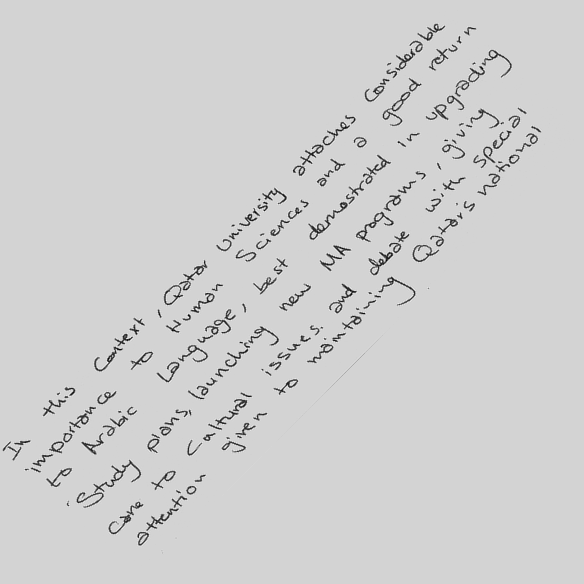 In this Context, Qatar University attaches Considerable
importance to Human Sciences and a good return
to Arabic Language, best demostrated in upgrading
Study plans, launching new MA programs, giving
Care to Cultural issues and debate with special
attention given to maintaining Qatar's national